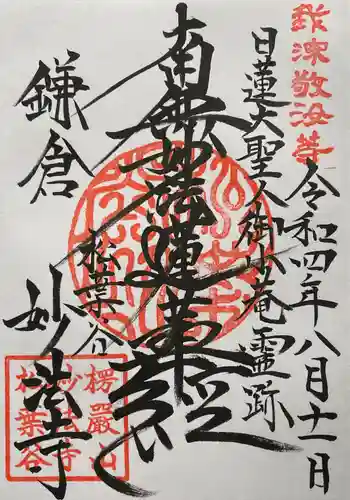 令和四年八月十一日
日蓮大聖人御小菴霊跡
南無妙法蓮華経
松葉谷
鎌倉
妙法寺
楞厳山
妙法寺
松葉谷